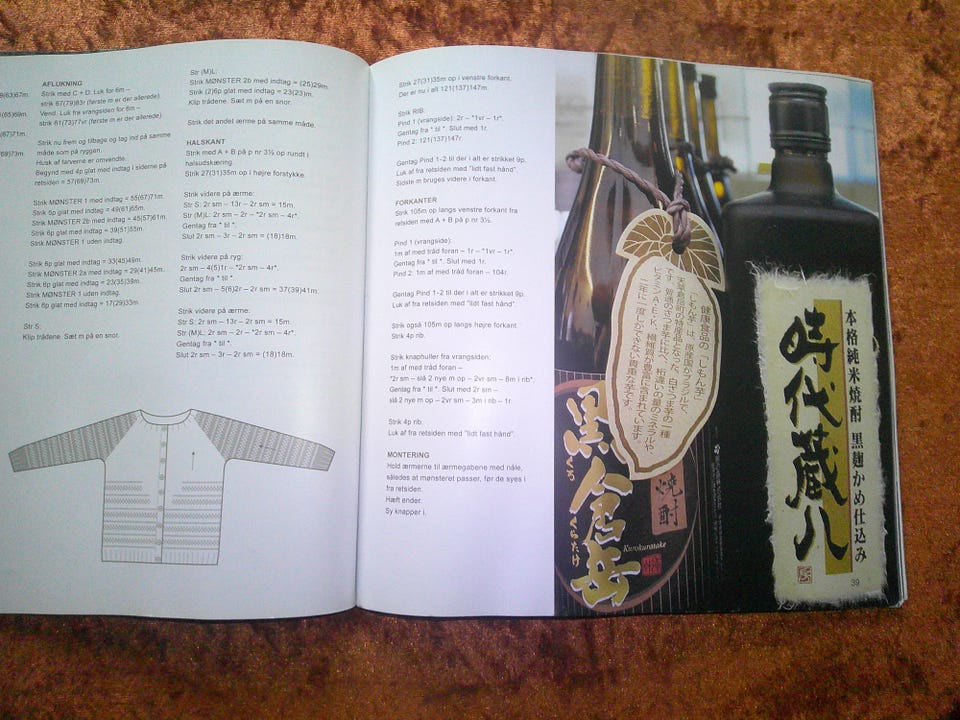 AFLUKNING
Strik med C + D. Luk for 6m –
strik 67(79)83r (første m er der allerede).
Vend. Luk fra vrangsiden for 6m –
strik 61(73)77vr (første m er der allerede).
Strik nu frem og tilbage og tag ind på samme
måde som på ryggen.
Husk at farverne er omvendte.
Begynd med 4p glat med indtag i siderne på
retsiden = 57(69)73m.
Strik MØNSTER 1 med indtag = 55(67)71m.
Strik 6p glat med indtag = 49(61)65m.
Strik MØNSTER 2b med indtag = 45(57)61m.
Strik 6p glat med indtag = 39(51)55m.
Strik MØNSTER 1 uden indtag.
Strik 6p glat med indtag = 33(45)49m.
Strik MØNSTER 2a med indtag = 29(41)45m.
Strik 6p glat med indtag = 23(35)39m.
Strik MØNSTER 1 uden indtag.
Strik 6p glat med indtag = 17(29)33m.
Str S:
Klip trådene. Sæt m på en snor.
Str (M)L:
Strik MØNSTER 2b med indtag = (25)29m.
Strik (2)6p glat med indtag = 23(23)m.
Klip trådene. Sæt m på en snor.
Strik det andet ærme på samme måde.
HALSKANT
Strik med A + B på p nr 3½ op rundt i
halsudskæring.
Strik 27(31)35m op i højre forstykke.
Strik videre på ærme:
Str S: 2r sm – 13r – 2r sm = 15m.
Str (M)L: 2r sm – 2r – *2r sm – 4r*.
Gentag fra * til *.
Slut 2r sm – 3r – 2r sm = (18)18m.
Strik videre på ryg:
2r sm – 4(5)1r – *2r sm – 4r*.
Gentag fra * til *.
Slut 2r sm – 5(6)2r – 2r sm = 37(39)41m.
Strik videre på ærme:
Str S: 2r sm – 13r – 2r sm = 15m.
Str (M)L: 2r sm – 2r – *2r sm – 4r*.
Gentag fra * til *.
Slut 2r sm – 3r – 2r sm = (18)18m.
Strik 27(31)35m op i venstre forkant.
Der er nu i alt 121(137)147m.
Strik RIB:
Pind 1 (vrangside): 2r – *1vr – 1r*.
Gentag fra * til *. Slut med 1r.
Pind 2: 121(137)147r.
Gentag Pind 1-2 til der i alt er strikket 9p.
Luk af fra retsiden med "lidt fast hånd".
Sidste m bruges videre i forkant.
FORKANTER
Strik 105m op langs venstre forkant fra
retsiden med A + B på p nr 3½.
Pind 1 (vrangside):
1m af med tråd foran – 1r – *1vr – 1r*.
Gentag fra * til *. Slut med 1r.
Pind 2: 1m af med tråd foran – 104r.
Gentag Pind 1-2 til der i alt er strikket 9p.
Luk af fra retsiden med "lidt fast hånd".
Strik også 105m op langs højre forkant.
Strik 4p rib.
Strik knaphuller fra vrangsiden:
1m af med tråd foran –
*2r sm – slå 2 nye m op – 2vr sm – 8m i rib*.
Gentag fra * til *. Slut med 2r sm –
slå 2 nye m op – 2vr sm – 3m i rib – 1r.
Strik 4p rib.
Luk af fra retsiden med "lidt fast hånd".
MONTERING
Hold ærmerne til ærmegabene med nåle,
således at mønsteret passer, før de syes i
fra retsiden.
Hæft ender.
Sy knapper i.
健康食品の「しもん芋」
「しもん芋」は、原産国がブラジルで、
天草倉岳町の特産品となった、白さつま芋の一種
です。普通のさつま芋に比べ、桁違いの量のミネラルや、
ビタミンA・E・K、繊維質が豊富に含まれています。
二年に一度しかできない貴重な芋です。
黒倉岳
くろ
くらたけ
焼酎
Kurokuratake
本格純米焼酎 黒麹かめ仕込み
時代蔵八
39